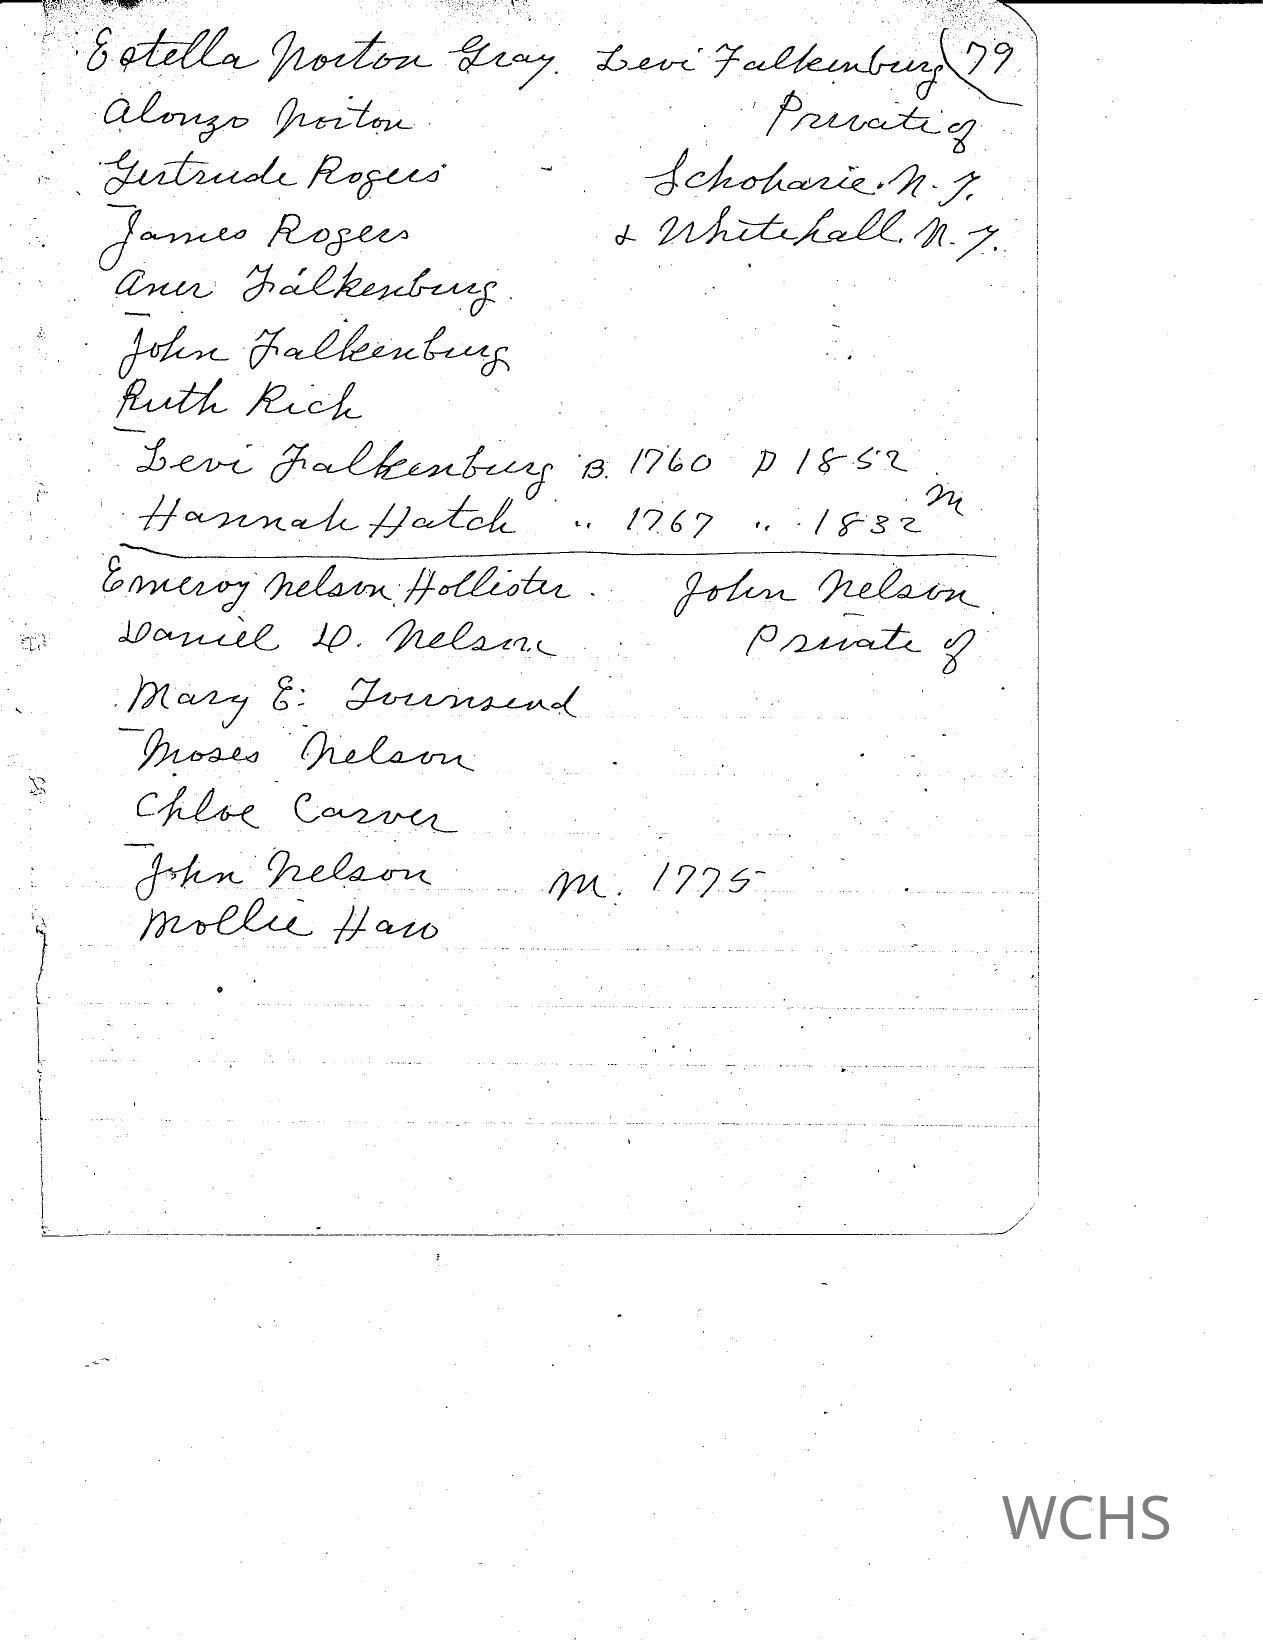 Estella Norton Gray. Levi Falkenburg 79
Alonzo Norton Private of
Gertrude Rogers Schoharie. N. Y.
James Rogers & Whitehall. N. Y.
Aner Falkenburg.
John Falkenburg
Ruth Rich
Levi Falkenburg B. 1760 D 1852
Hannah Hatch " 1767 " 1832 M
Emeroy Nelson Hollister. John Nelson
Daniel D. Nelson Private of
Mary E. Townsend
Moses Nelson
Chloe Carver
John Nelson M. 1775
Mollie Haw
WCHS